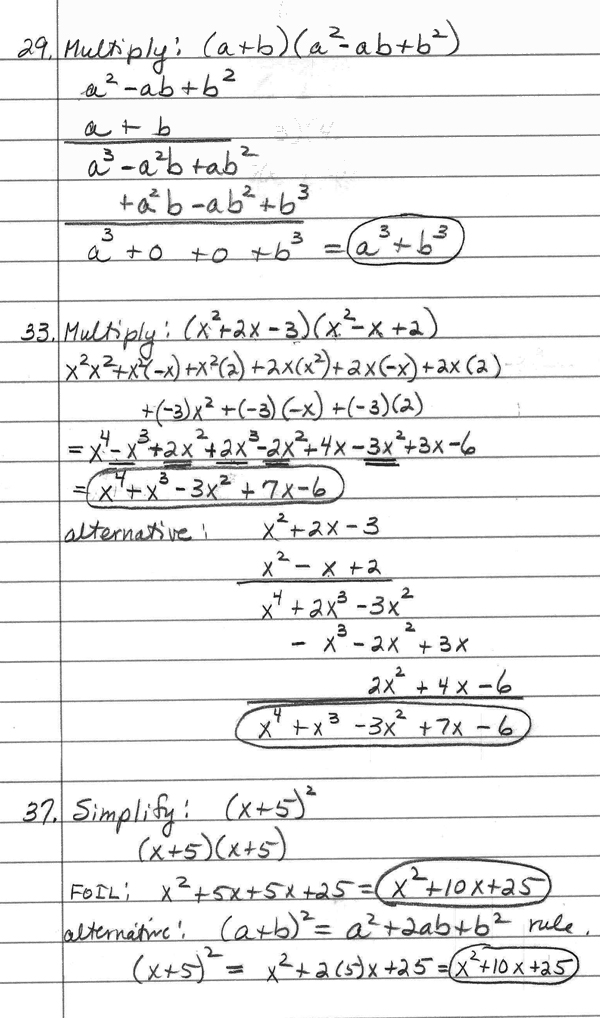 29. Multiply: (a+b)(a²-ab+b²)
a²-ab+b²
a + b
a³-a²b+ab²
+a²b-ab²+b³
a³+0 +0 +b³ = a³+b³
33. Multiply: (x²+2x-3)(x²-x+2)
x²x²+x²(-x)+x²(2)+2x(x²)+2x(-x)+2x(2)
+(-3)x²+(-3)(-x)+(-3)(2)
= x⁴-x³+2x²+2x³-2x²+4x-3x²+3x-6
= x⁴+x³-3x²+7x-6
alternative: x²+2x-3
x²-x+2
x⁴+2x³-3x²
- x³-2x²+3x
2x²+4x-6
x⁴+x³-3x²+7x-6
37. Simplify: (x+5)²
(x+5)(x+5)
FOIL: x²+5x+5x+25= x²+10x+25
alternative: (a+b)²= a²+2ab+b² rule.
(x+5)²= x²+2(5)x+25= x²+10x+25